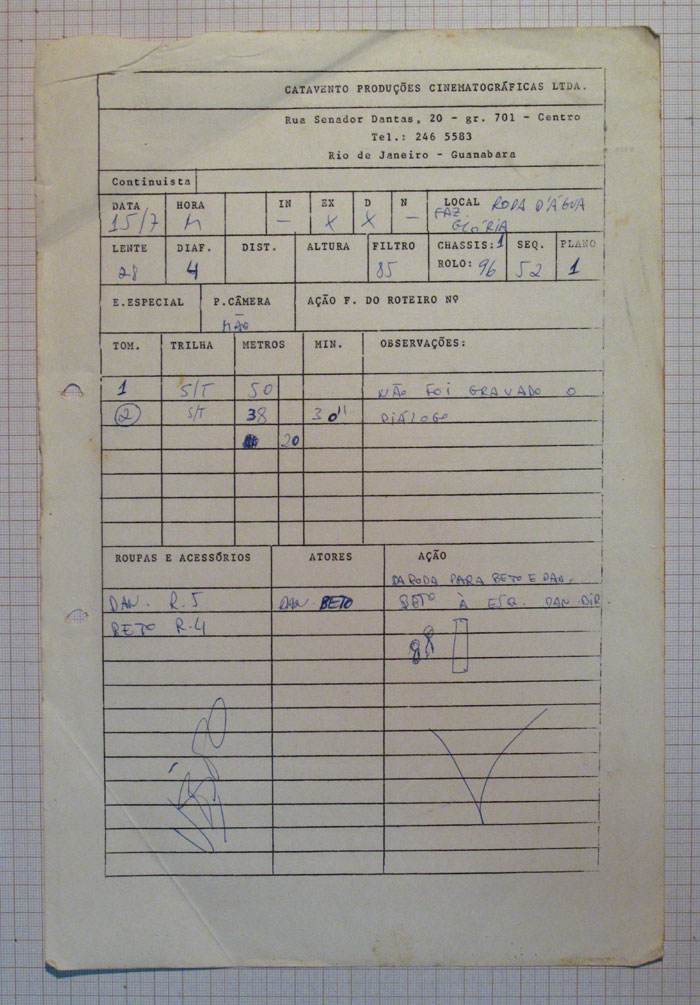 CATAVENTO PRODUÇÕES CINEMATOGRÁFICAS LTDA.
Rua Senador Dantas, 20 - gr. 701 - Centro
Tel.: 246 5583
Rio de Janeiro - Guanabara
Continuista
DATA HORA IN EX D N LOCAL RODA D'ÁGUA
15/7 M - X X - FAZ.
GLÓRIA
LENTE DIAF. DIST. ALTURA FILTRO CHASSIS: 1 SEQ. PLANO
28 4 85 ROLO: 96 52 1
E.ESPECIAL P.CÂMERA AÇÃO F. DO ROTEIRO Nº
MÃO
TOM. TRILHA METROS MIN. OBSERVAÇÕES:
1 S/T 50 NÃO FOI GRAVADO O
2 S/T 38 30" DIÁLOGO
20
ROUPAS E ACESSÓRIOS ATORES AÇÃO
DA RODA PARA BETO E DAN.
DAN. R.5 DAN. BETO BETO À ESQ. DAN DIR.
BETO R.4